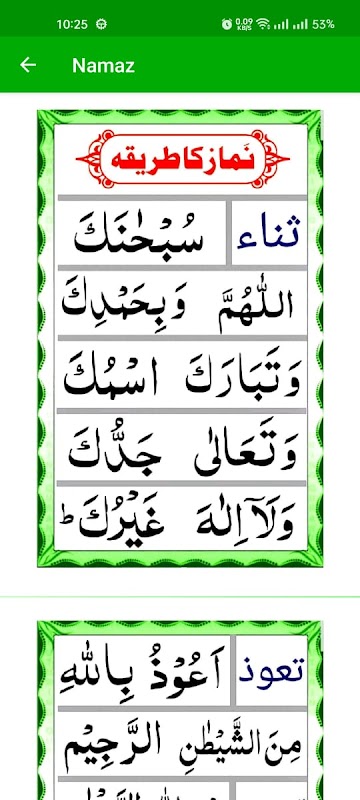 10:25 0.09 KB/S 53%
Namaz
نماز کا طریقہ
ثناء سُبْحٰنَكَ
اللّٰهُمَّ وَبِحَمْدِكَ
وَتَبَارَكَ اسْمُكَ
وَتَعَالٰى جَدُّكَ
وَلَآ اِلٰهَ غَيْرُكَ ط
تعوذ اَعُوْذُ بِاللّٰهِ
مِنَ الشَّيْطٰنِ الرَّجِيْمِ